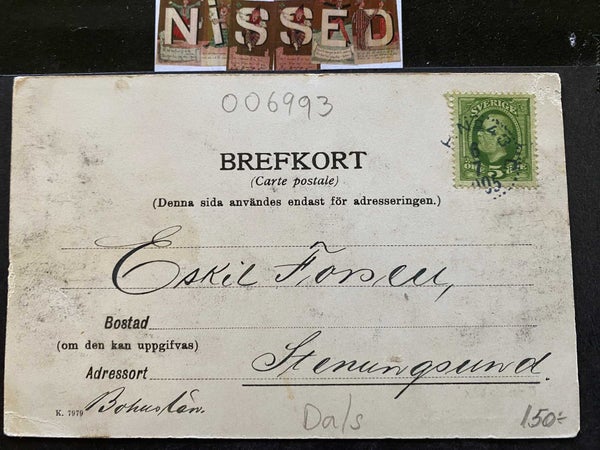 NISSED
006993
SVERIGE
5
BREFKORT
(Carte postale)
(Denna sida användes endast för adresseringen.)
Eskil Forsell,
Bostad
(om den kan uppgifvas)
Adressort
Stenungsund.
K. 7979
Bohuslän.
Dals
150:-